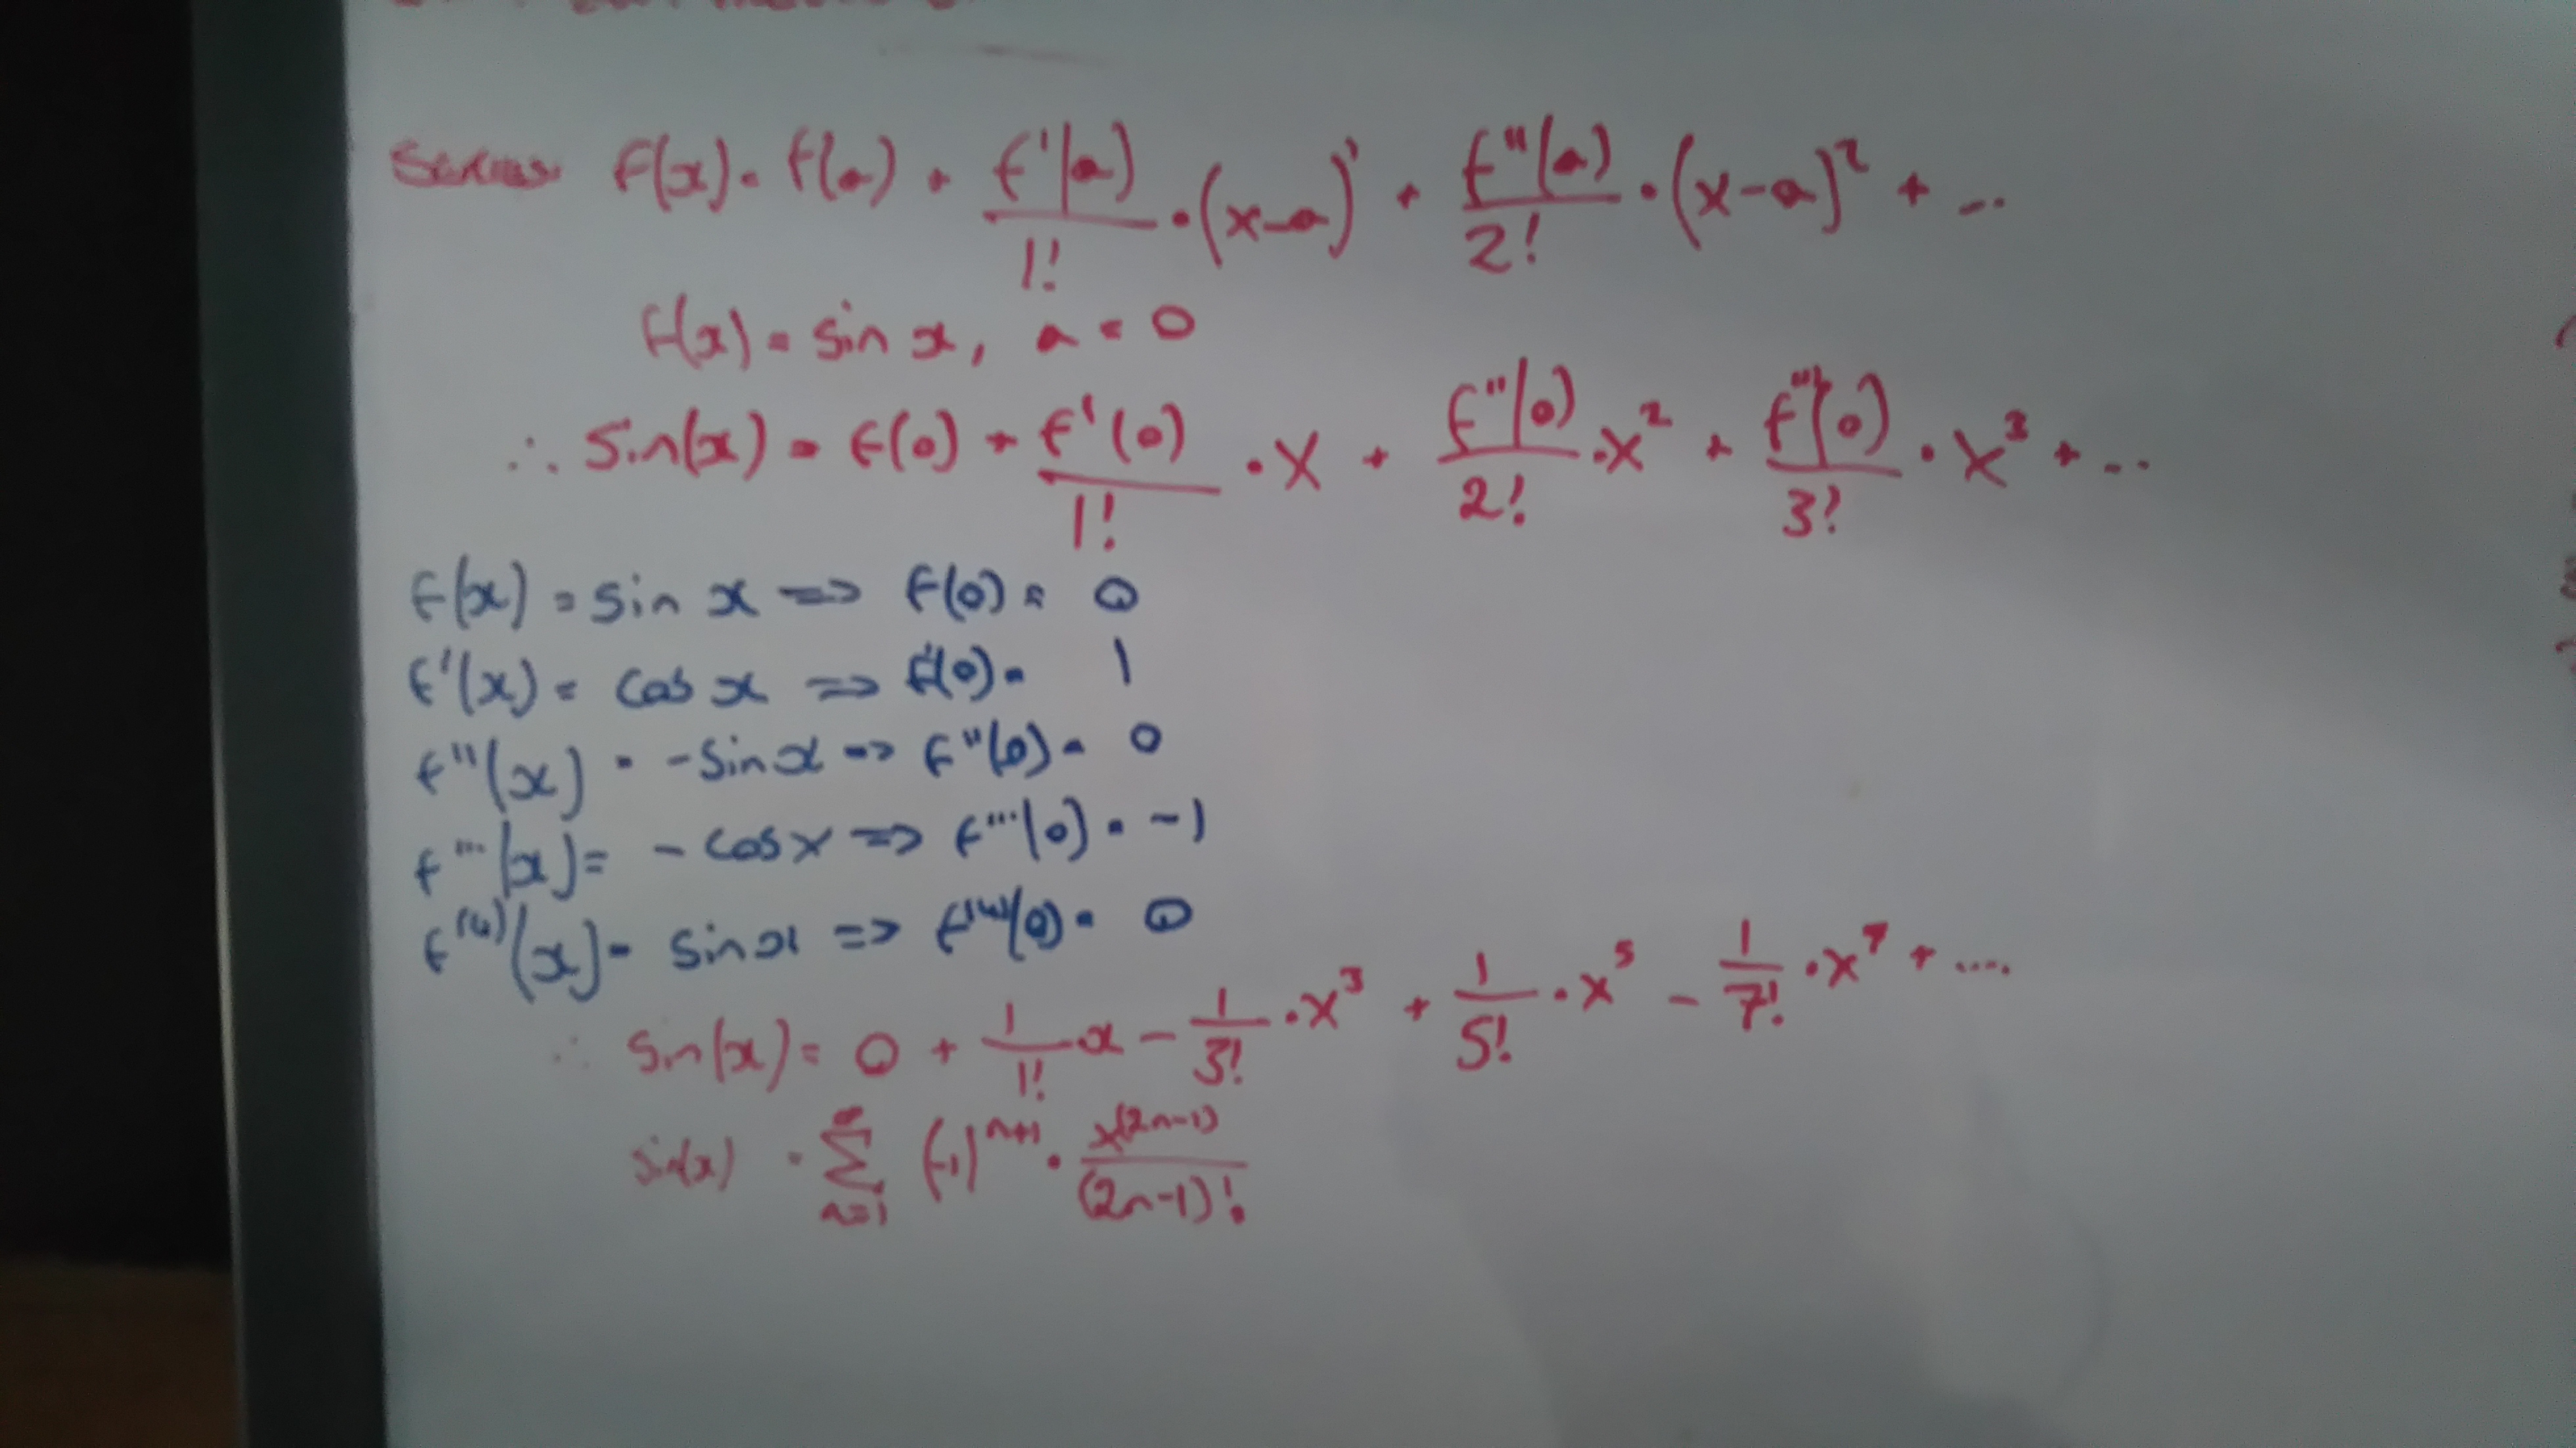 Series f(x) = f(a) + f'(a)/1! · (x-a)¹ + f''(a)/2! · (x-a)² + ...
f(x) = sin x, a = 0
∴ Sin(x) = f(0) + f'(0)/1! · x + f''(0)/2! · x² + f'''(0)/3! · x³ + ...
f(x) = sin x ⇒ f(0) = 0
f'(x) = cos x ⇒ f'(0) = 1
f''(x) = -sin x ⇒ f''(0) = 0
f'''(x) = -cos x ⇒ f'''(0) = -1
f''''(x) = sin x ⇒ f''''(0) = 0
∴ Sin(x) = 0 + 1/1! · x - 1/3! · x³ + 1/5! · x⁵ - 1/7! · x⁷ + ....
sin(x) = ∞Σn=1 (-1)^n+1 · x^(2n-1)/(2n-1)!